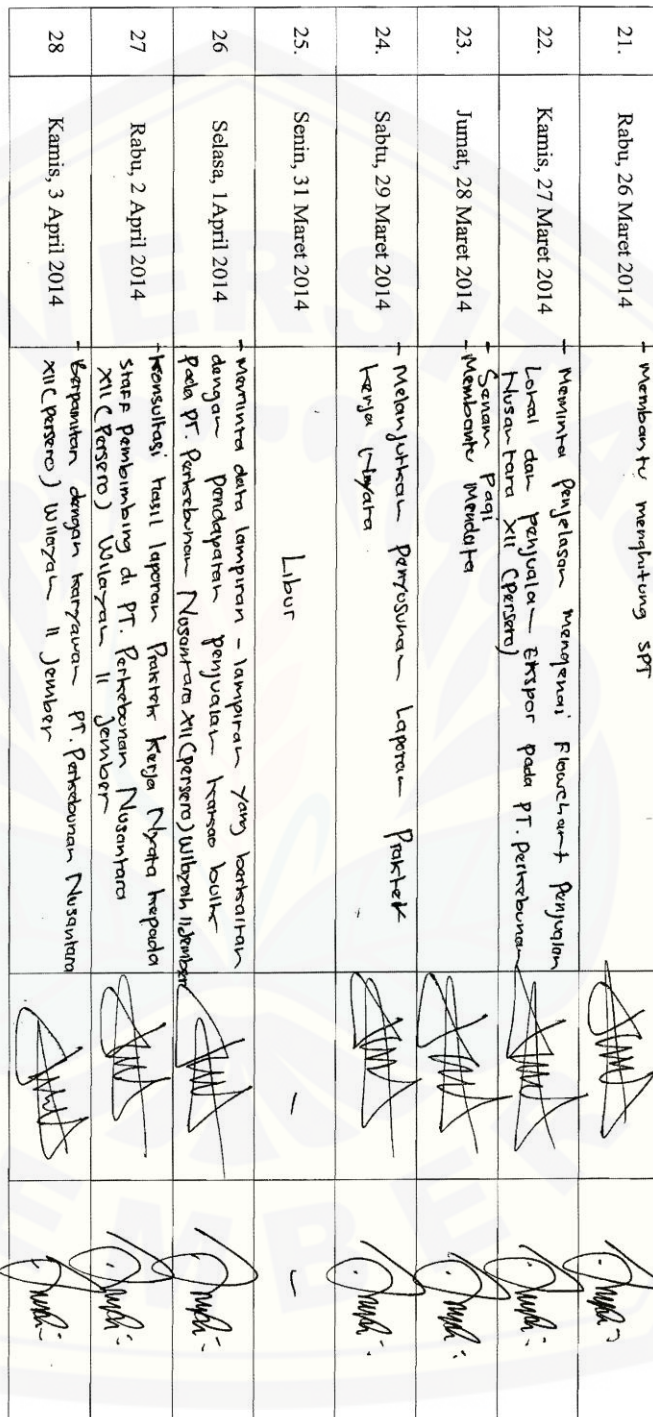 21.
Rabu, 26 Maret 2014
- Membantu menghitung SPT
22.
Kamis, 27 Maret 2014
- Meminta penjelasan mengenai Flowchart Penjualan
Lokal dan penjualan Ekspor pada PT. perkebunan
Nusantara XII (Persero)
23.
Jumat, 28 Maret 2014
- Senam Pagi
- Membantu Mendata
24.
Sabtu, 29 Maret 2014
- Melanjutkan penyusunan Laporan Praktek
kerja Nyata
25.
Senin, 31 Maret 2014
Libur
-
-
26
Selasa, 1April 2014
- Meminta data lampiran - lampiran yang berkaitan
dengan pendapatan penjualan kakao bulk
pada PT. Perkebunan Nusantara XII (persero) wilayah II Jember
27
Rabu, 2 April 2014
- Konsultasi hasil laporan Praktek Kerja Nyata kepada
staff pembimbing di PT. Perkebunan Nusantara
XII (Persero) Wilayah II Jember
28
Kamis, 3 April 2014
- Berpamitan dengan karyawan PT. Perkebunan Nusantara
XII (persero) Wilayah II Jember